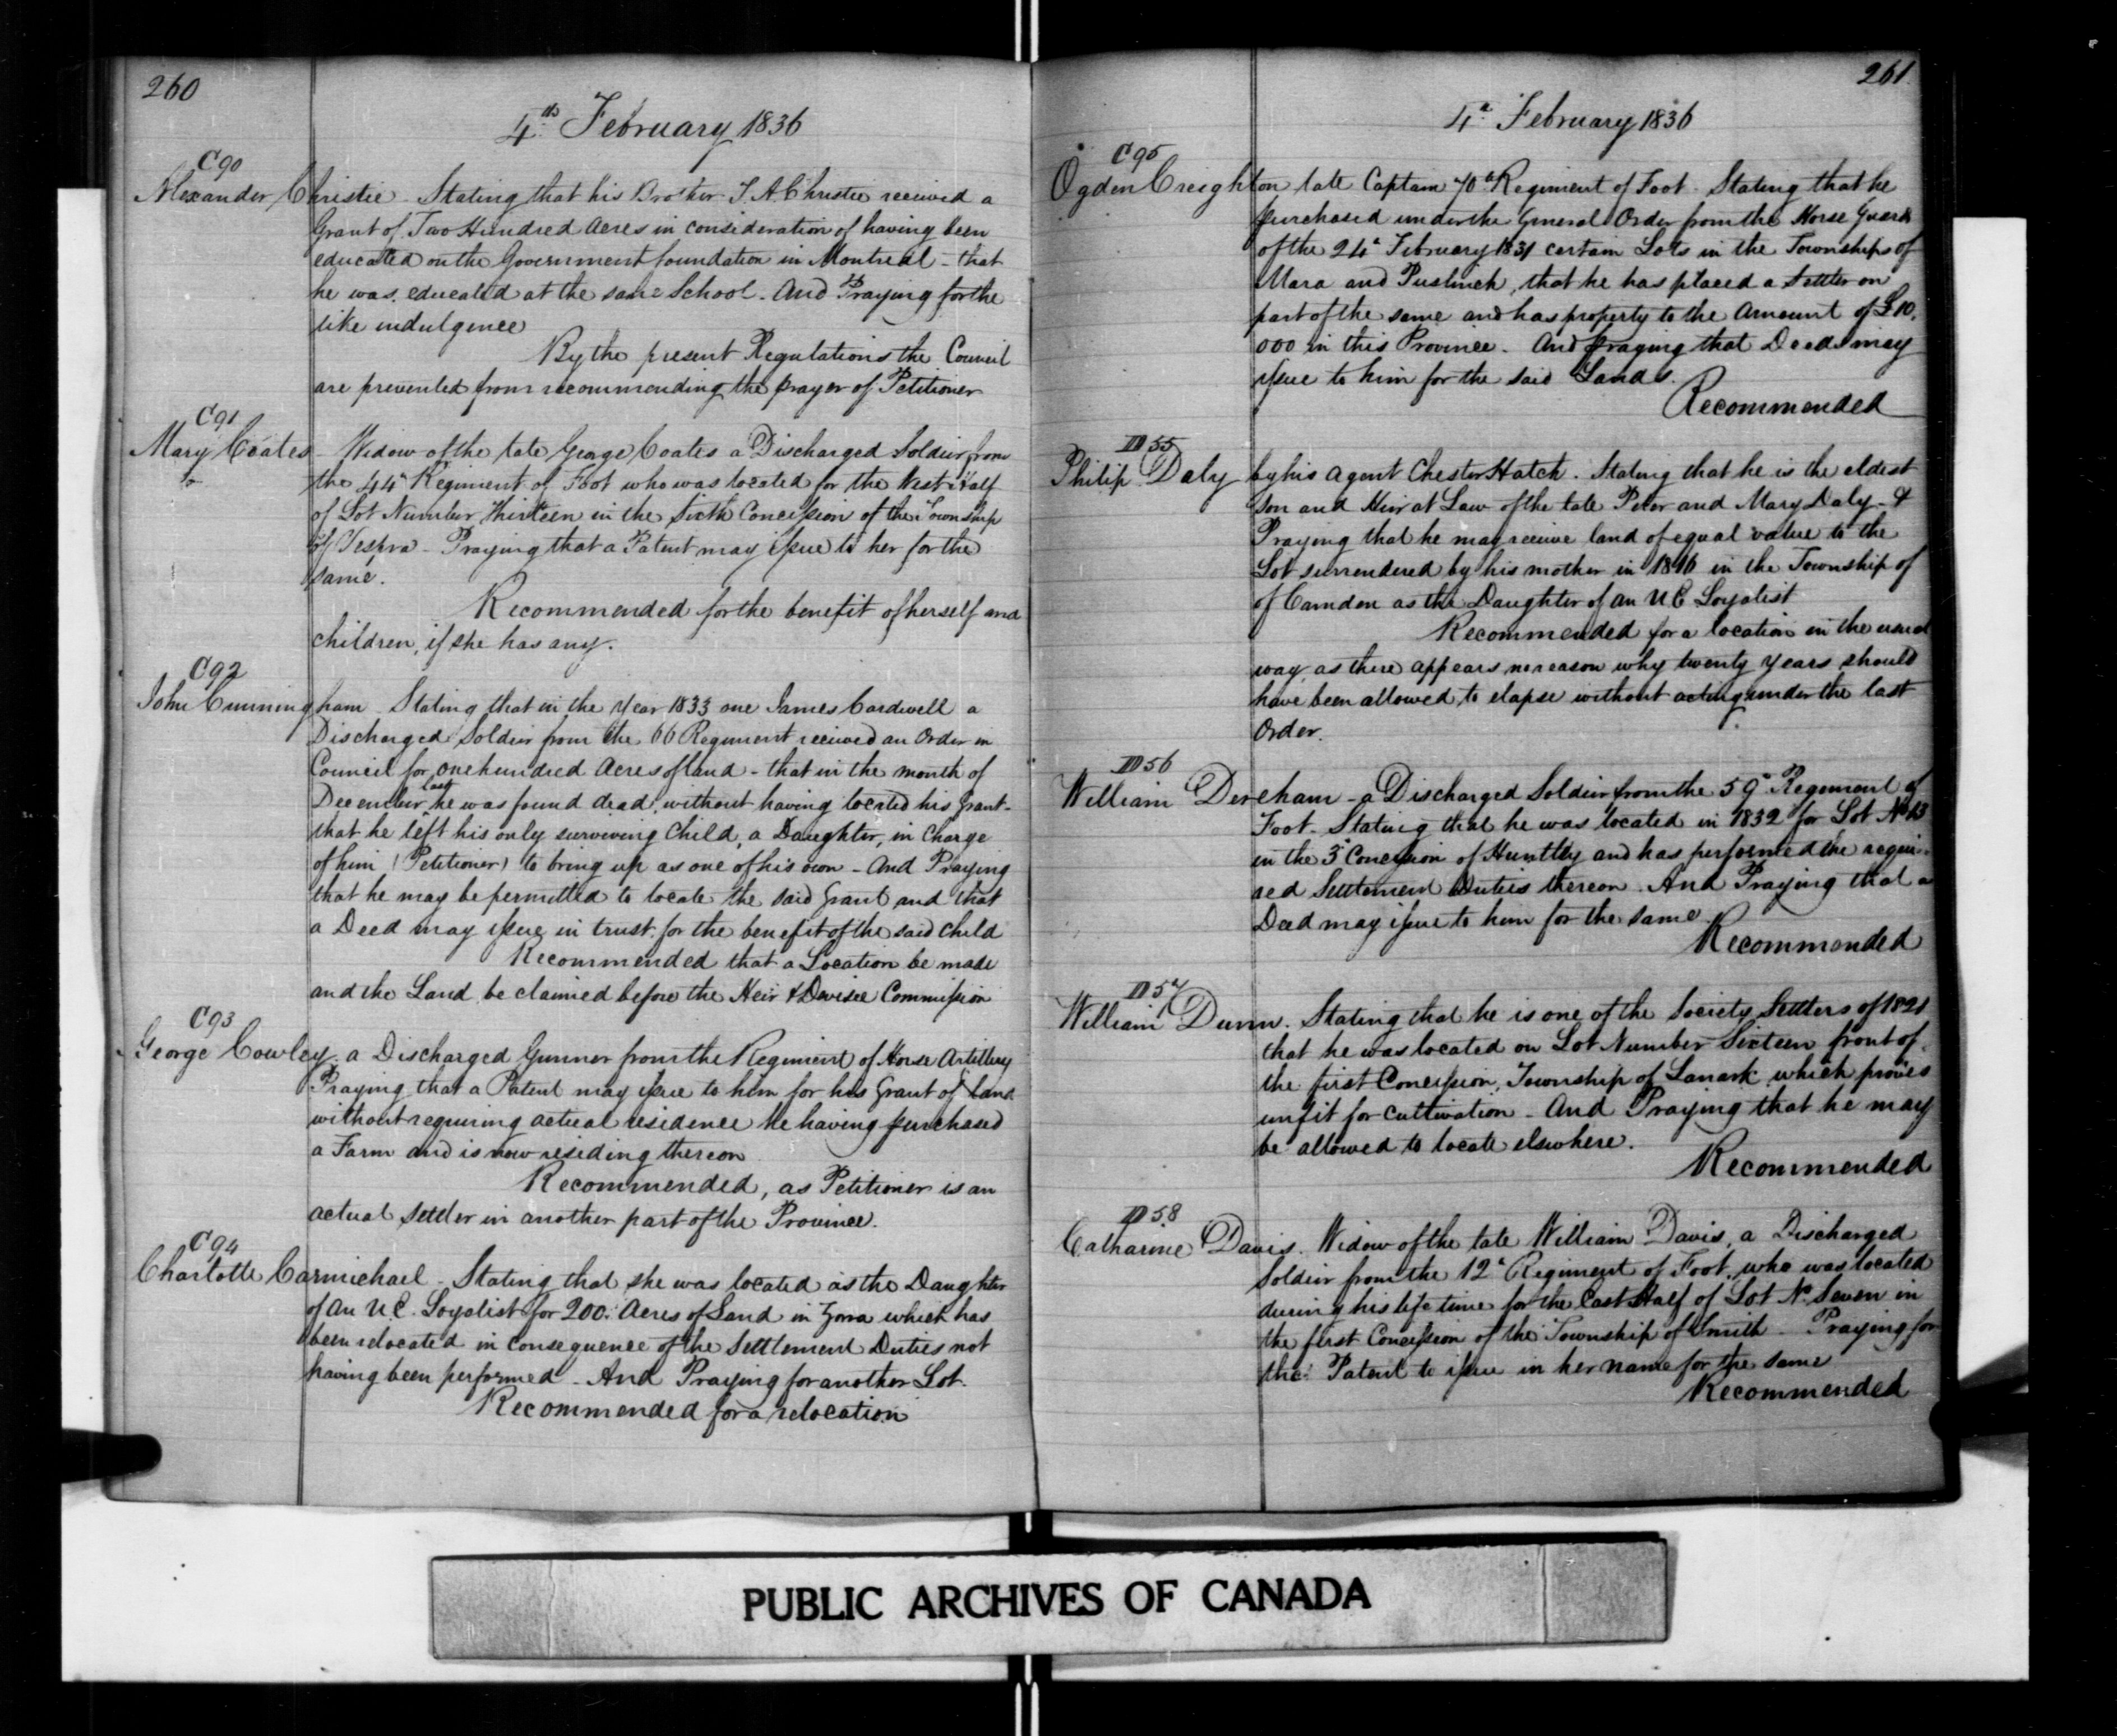 260
4th February 1836
C90
Alexander Christie - Stating that his Brother J. A. Christie received a
Grant of Two Hundred Acres in consideration of having been
educated on the Government foundation in Montreal - that
he was educated at the same School. And Praying for the
like indulgence
By the present Regulations the Council
are prevented from recommending the prayer of Petitioner
C91
Mary Coates - Widow of the late George Coates a Discharged Soldier from
the 44th Regiment of Foot who was located for the West Half
of Lot Number Thirteen in the Sixth Concession of the Township
of Vespra - Praying that a Patent may issue to her for the
same.
Recommended for the benefit of herself and
children, if she has any.
C92
John Cunningham - Stating that in the Year 1833 one James Cardwell a
Discharged Soldier from the 66 Regiment received an Order in
Council for one hundred Acres of land - that in the month of
December last he was found dead, without having located his grant -
that he left his only surviving Child, a Daughter, in charge
of him (Petitioner) to bring up as one of his own - And Praying
that he may be permitted to locate the said Grant and that
a Deed may issue in trust for the benefit of the said child
Recommended that a Location be made
and the Land be claimed before the Heir & Devisee Commission
C93
George Cowley, a Discharged Gunner from the Regiment of Horse Artillery
Praying that a Patent may issue to him for his Grant of land
without requiring actual residence he having purchased
a Farm and is now residing thereon
Recommended, as Petitioner is an
actual settler in another part of the Province.
C94
Charlotte Carmichael - Stating that she was located as the Daughter
of an U.E. Loyalist for 200 Acres of Land in Zorra which has
been relocated in consequence of the Settlement Duties not
having been performed - And Praying for another Lot.
Recommended for a relocation
261
4th February 1836
C95
Ogden Creighton late Captain 70th Regiment of Foot - Stating that he
purchased under the General Order from the Horse Guards
of the 24th February 1831 certain Lots in the Townships of
Mara and Puslinch, that he has placed a settler on
part of the same and has property to the Amount of £10,
000 in this Province - And praying that Deeds may
issue to him for the said Lands.
Recommended
D55
Philip Daly by his Agent Chester Hatch. Stating that he is the eldest
son and Heir at Law of the late Peter and Mary Daly - &
Praying that he may receive land of equal value to the
Lot surrendered by his mother in 1816 in the Township of
of Camden as the Daughter of an U E Loyalist
Recommended for a location in the usual
way, as there appears no reason why twenty years should
have been allowed to elapse without acting under the last
Order.
D56
William Dereham - a Discharged Soldier from the 59th Regiment of
Foot - Stating that he was located in 1832 for Lot No 13
in the 3d Concession of Huntley and has performed the requi-
red Settlement Duties thereon. And Praying that a
Deed may issue to him for the same.
Recommended
D57
William Dunn. Stating that he is one of the Society Settlers of 1821
that he was located on Lot Number Sixteen front of
the first Concession, Township of Lanark which proves
unfit for cultivation - And Praying that he may
be allowed to locate elsewhere.
Recommended
D58
Catharine Davis. Widow of the late William Davis, a Discharged
Soldier from the 12th Regiment of Foot, who was located
during his life time for the East Half of Lot No Seven in
the first Concession of the Township of Smith - Praying for
the Patent to issue in her name for the same
Recommended
PUBLIC ARCHIVES OF CANADA